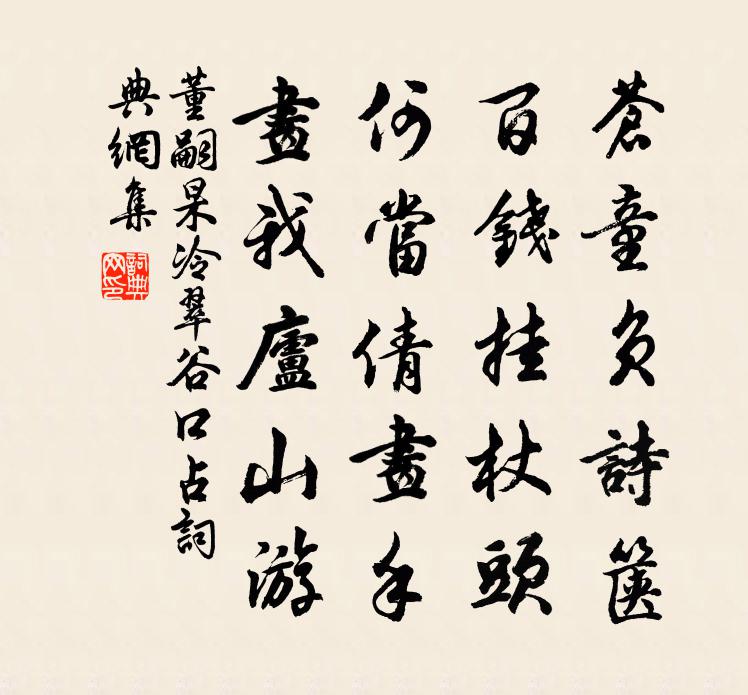 蒼童負詩篋
百錢挂杖頭
何當倩畫手
畫我廬山游
董嗣杲冷翠谷口占詞
典網集
詞典网印